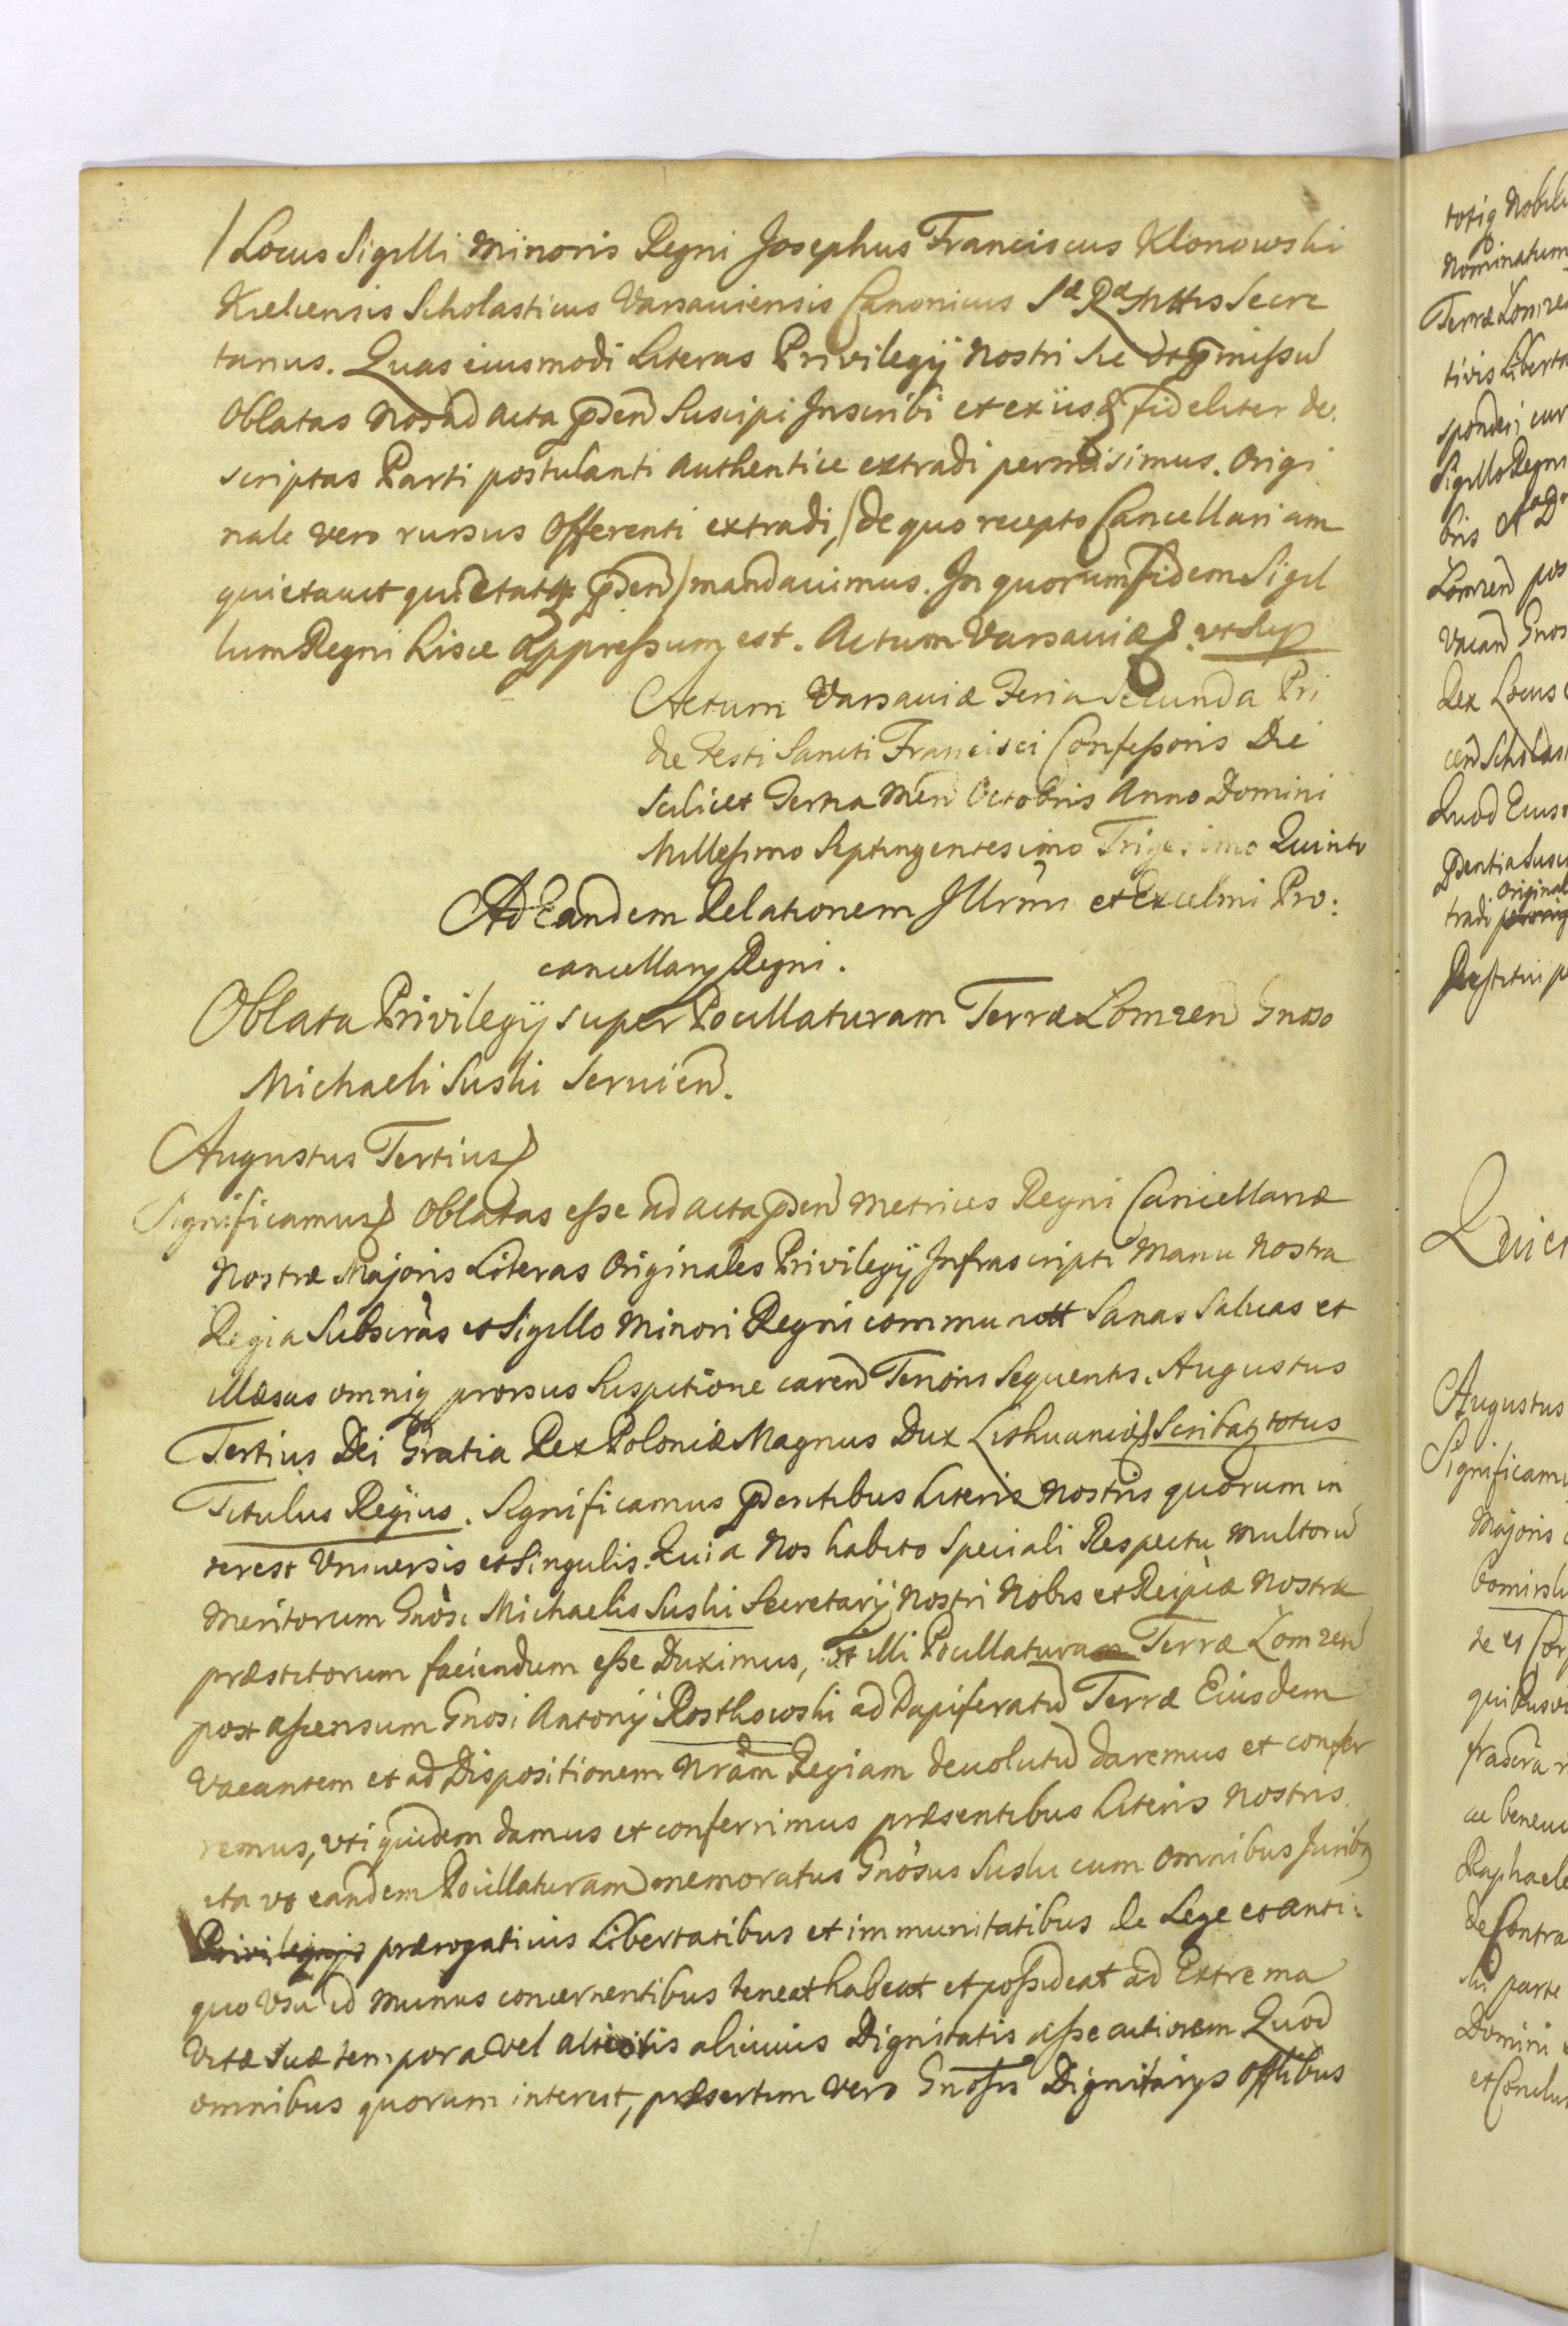 /Locus Sigilli Minoris Regni Josephus Franciscus Klonowski
Kielcensis Scholasticus Varsauiensis Canonicus Sæ Ræ Mttis Secre
tarius. Quas eiusmodi Literas Privilegij Nostri sic ut pmissũ
Oblatas Nos ad acta pñen Suscipi Inscribi et ex iisd fideliter de:
scriptas Parti postulanti authentice extradi permisimus. Origi
nale vero rursus Offerenti extradi, /de quo recepto Cancellariam
quietauit quietatq pñen/ mandauimus. In quorum fidem Sigil
lum Regni hisce appressum est. Actum Varsauiæ. ut sup
Actum Varsauiæ Feria Secunda Pri
die Festi Sancti Francisci Confessoris Die
Scilicet Tertia Men Octobris Anno Domini
Millesimo Septingentesimo Trigesimo Quinto
Ad Eandem Relationem Illrmi et Excelmi Pro:
cancellarij Regni.
Oblata Privilegij super Pocillaturam Terræ Lomzen Gnoso
Michaeli Suski Seruien.
Augustus Tertius
Significamus Oblatas esse ad acta pñen Metrices Regni Cancellariæ
Nostræ Majoris Literas Originales Privilegij Infrascripti Manu Nostra
Regia Subscras et Sigillo Minori Regni communitt Sanas Saluas et
illæsas omniq prorsus Suspitione caren Tenoris Sequentis. Augustus
Tertius Dei Gratia Rex Poloniæ Magnus Dux Lithuaniæ Scribatz totus
Titulus Regius. Significamus pñentibus Literis Nostris quorum in
terest Vniuersis et Singulis. Quia Nos habito Speciali Respectu multorũ
Meritorum Gnosi Michaelis Suski Secretarij Nostri Nobis et Reipcæ Nostræ
præstitorum faciendum esse Duximus, ut illi Pocillaturam Terræ Lomzen
post ascensum Gnosi Antonij Rostkowski ad Dapiferatũ Terræ Eiusdem
Vacantem et ad Dispositionem Nram Regiam deuolutũ daremus et confer
remus, uti quidem damus et conferrimus præsentibus Literis Nostris.
ita ut eandem Pocillaturam memoratus Gnosus Suski cum omnibus Juribq
Privilegijs prærogatiuis Libertatibus et immunitatibus de Lege et anti:
quo Vsu id munus concernentibus teneat habeat et possideat ad Extrema
Vitæ Suæ tempora vel alicuius Dignitatis assecutionem Quod
omnibus quorum interest, præsertim vero Gnosis Dignitarijs Offlibus
totiq Nobili
Nominatum
Terræ Lomzen
tivis Liberta
Sigillo Regni
Lomzen pos
Vacan Gnos
Rex Locus
cen Scholas
Quod Eius
pñentia Susci
original
tradi
Restitui p
Quiet
Augustus
Significamu
Majoris
quibusvi
ac beneuo
Raphaele
de Contra
ski parte
Domini
et Conclu